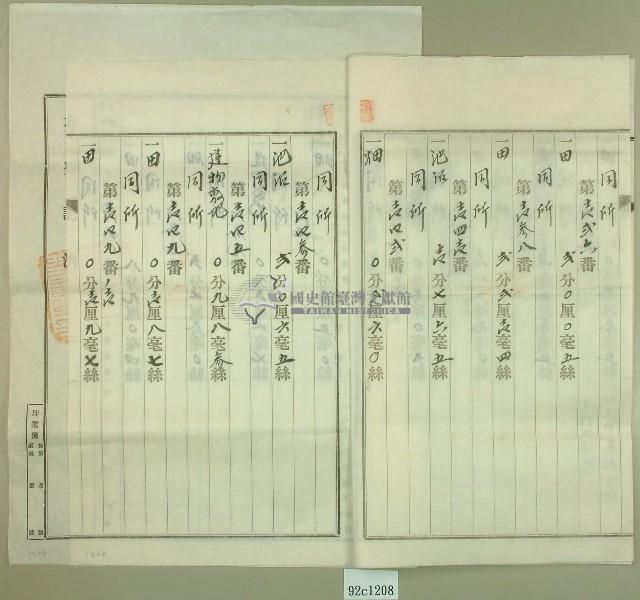 同所
第壱弐六番
一田 弐分〇厘〇毫五絲
同所
第壱参八番
一田 弐分弐厘壱毫四絲
同所
第壱四壱番
一池沼 壱分七厘六毫五絲
同所
第壱四弐番
一畑 〇分弐厘六毫〇絲
同所
第壱四参番
一池沼 弐分〇厘六毫五絲
同所
第壱四五番
一建物敷地 〇分九厘八毫参絲
同所
第壱四九番
一田 〇分壱厘八毫七絲
同所
第壱四九番ノ壱
一田 〇分壱厘九毫七絲
國史館臺灣文獻館
TAIWAN HISTORICA
印鑑簿
92c1208